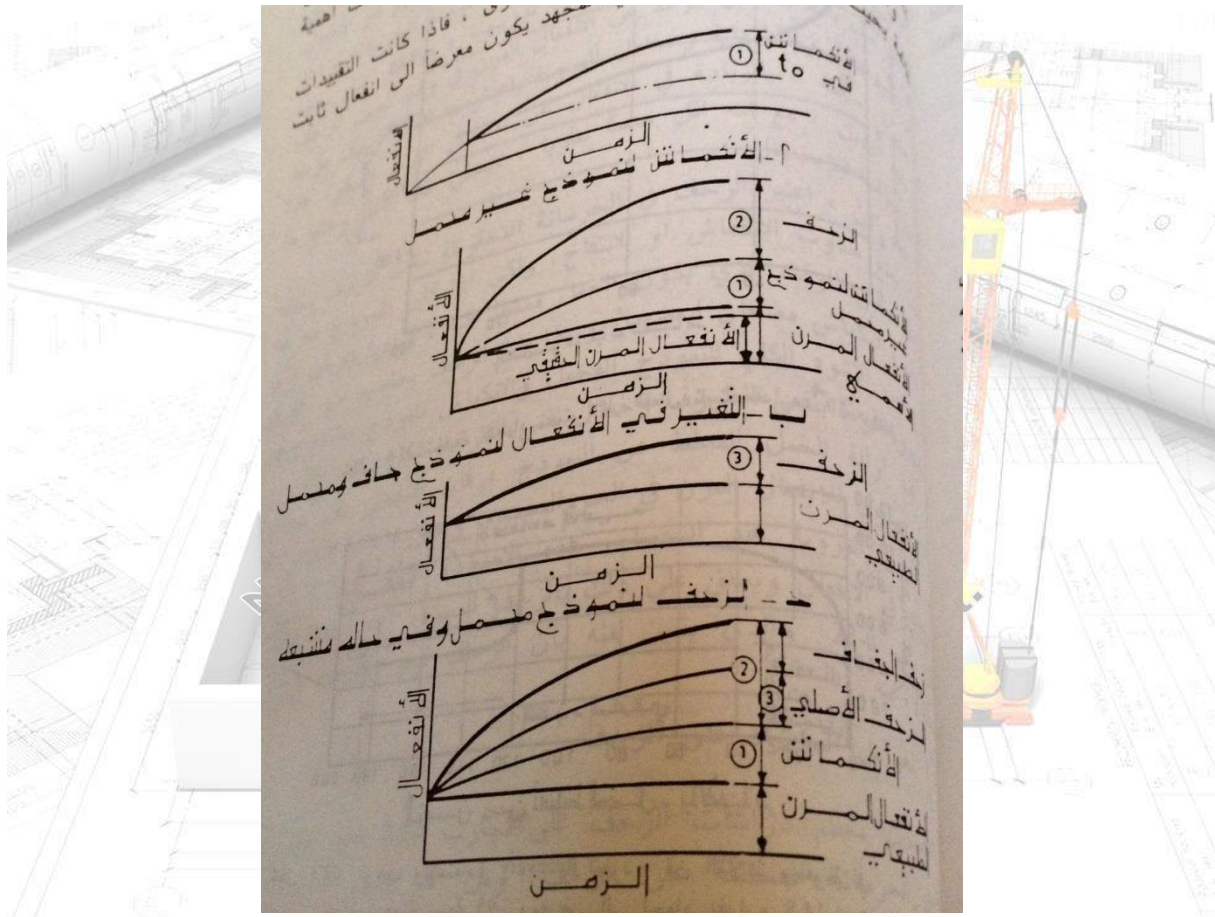 أهمية
، فاذا كانت التقييدات
المجهد يكون معرضاً الى انفعال ثابت
الأنكماش
في to
①
الانفعال
الزمن
أ - الأنكماش لنموذج غير محمل
الزحف
②
الأنكماش لنموذج
غير محمل
①
الأنفعال المرن
الأسمي
الأنفعال المرن الحقيقي
الأنفعال
الزمن
ب - التغيير في الأنفعال لنموذج جاف ومحمل
الزحف
③
الأنفعال المرن
الطبيعي
الأنفعال
الزمن
حـ - الزحف لنموذج محمل وفي حاله مشبعه
زحف الجفاف
②
الزحف الأصلي
③
الأنكماش
①
الأنفعال المرن
الطبيعي
الأنفعال
الزمن